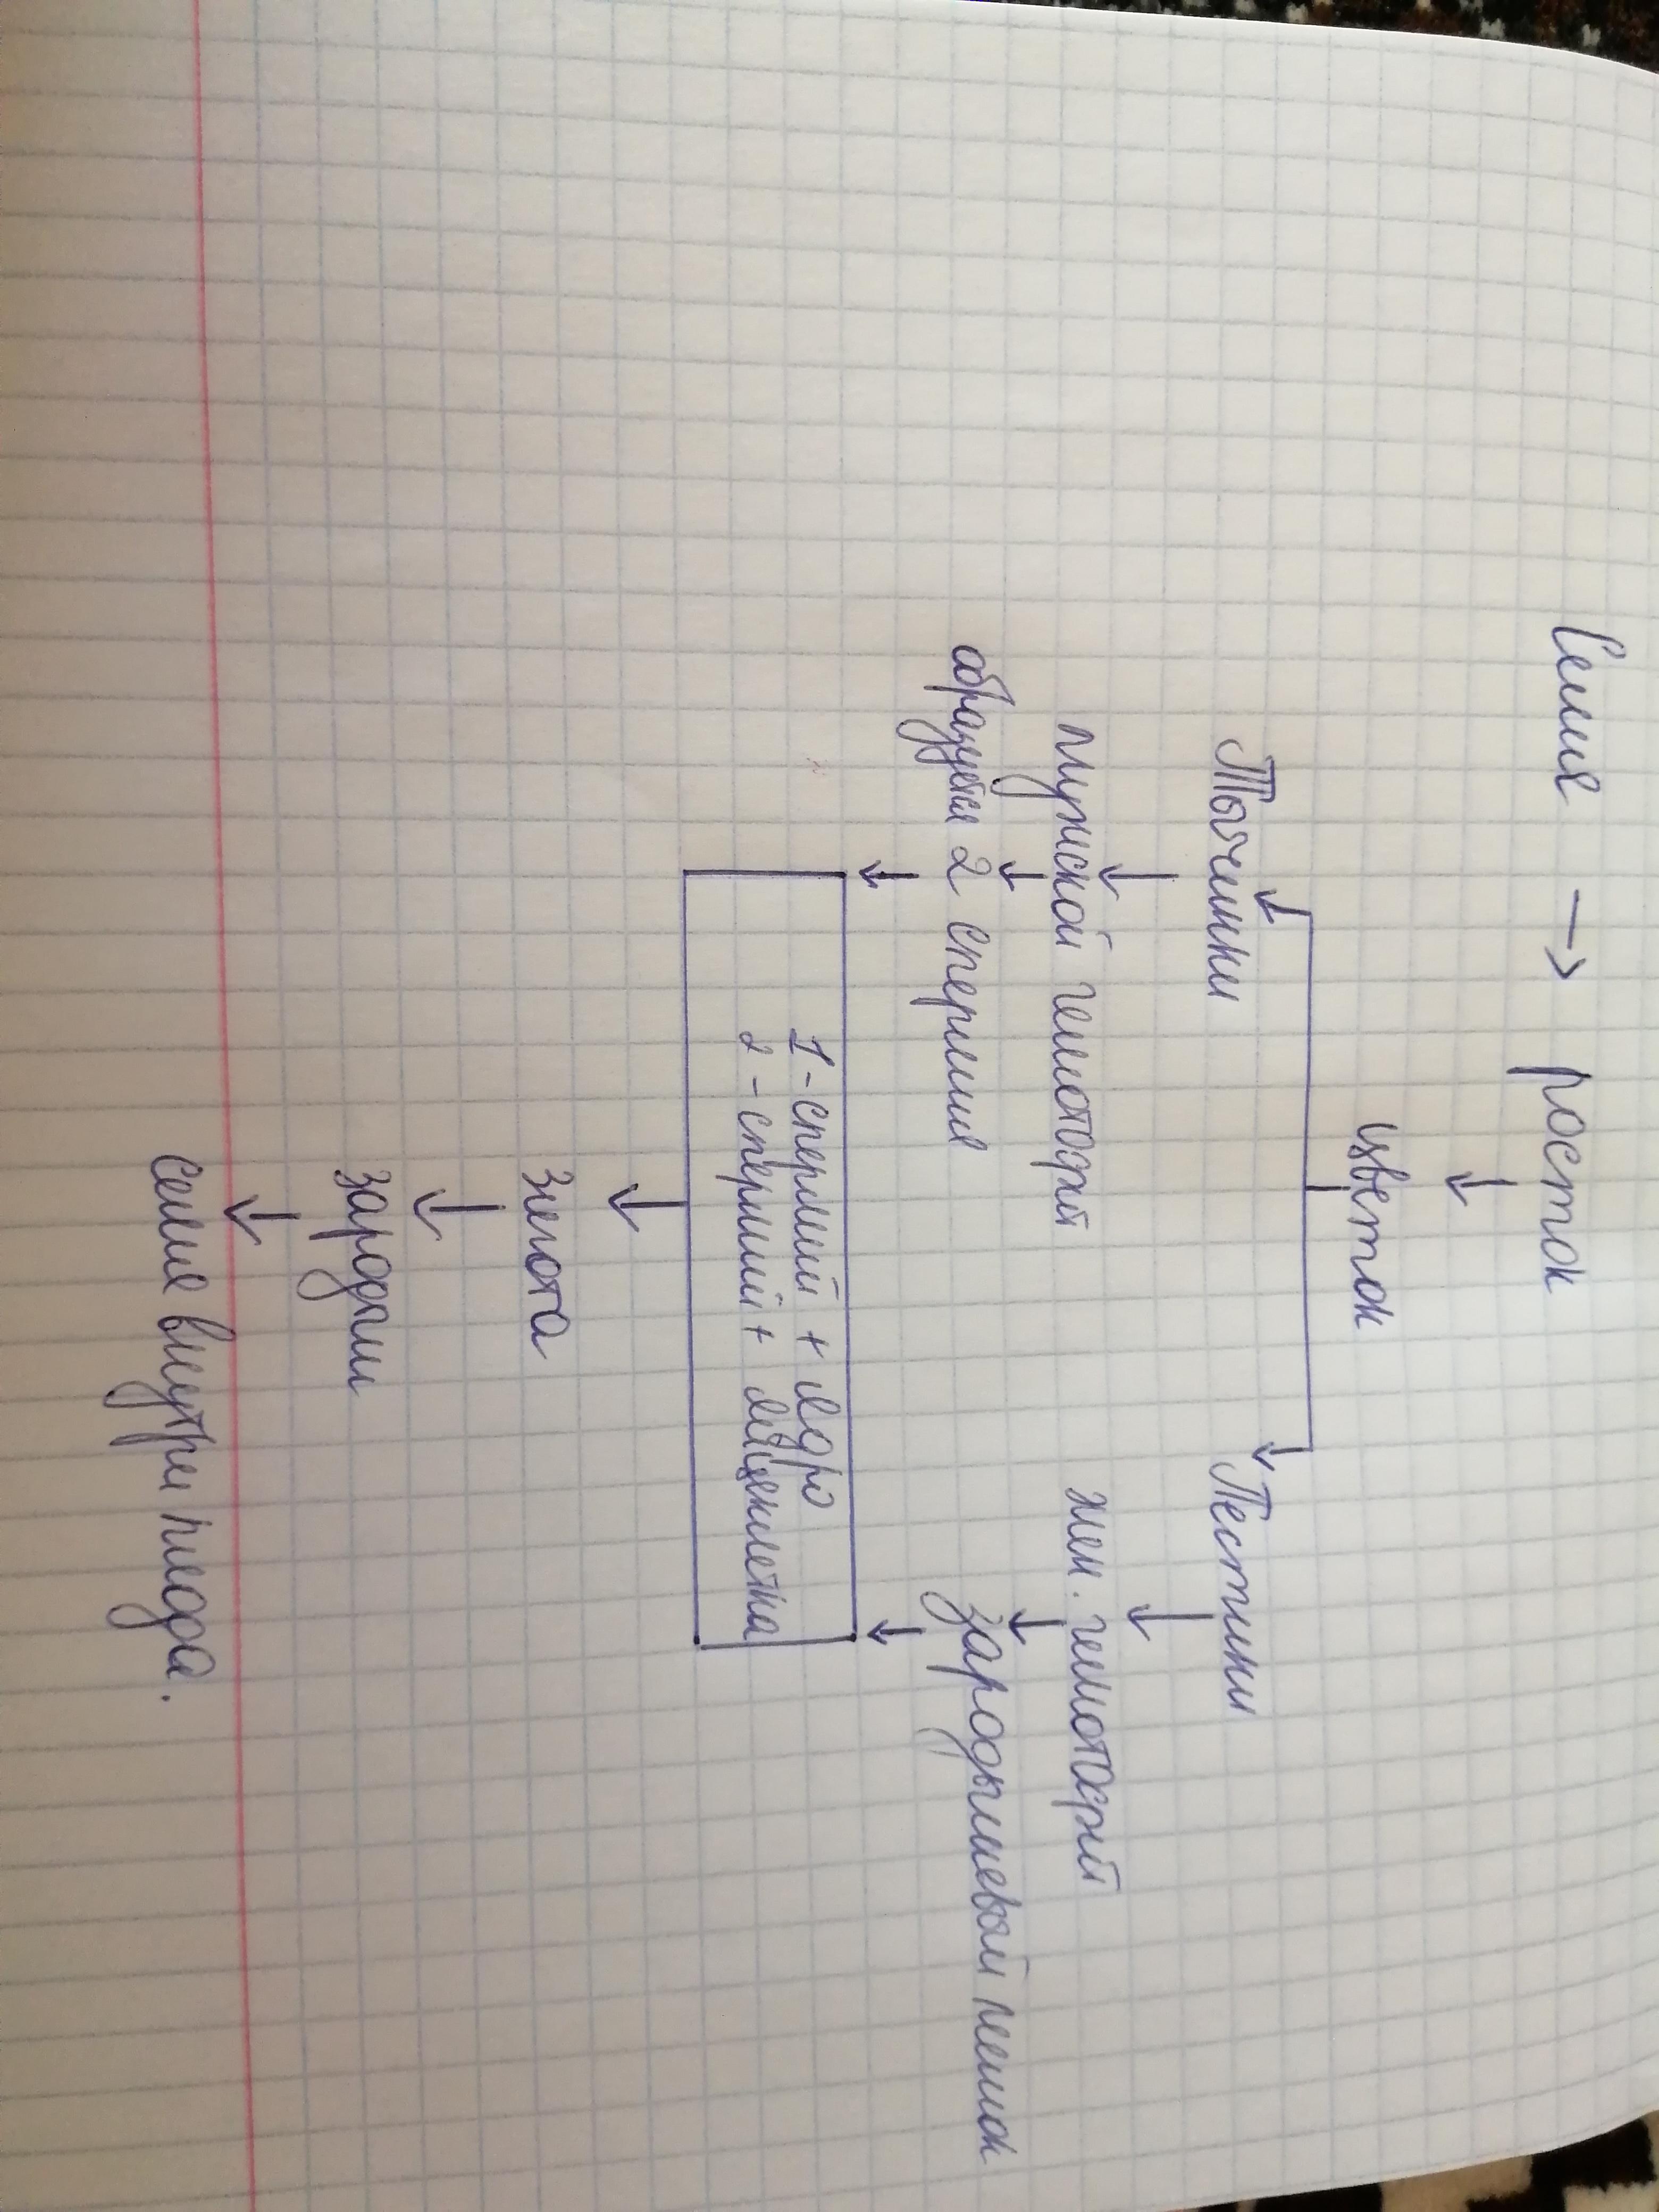 Семя → росток
↓
цветок
Тычинки Пестики
↓ ↓
мужской гематофит жен. гематофит
↓ ↓
образуется 2 спермия зародышевой мешок
↓ ↓
1-спермий + ядро
2-спермий + яйцеклетка
↓
Зигота
↓
зародыш
↓
Семя внутри плода.